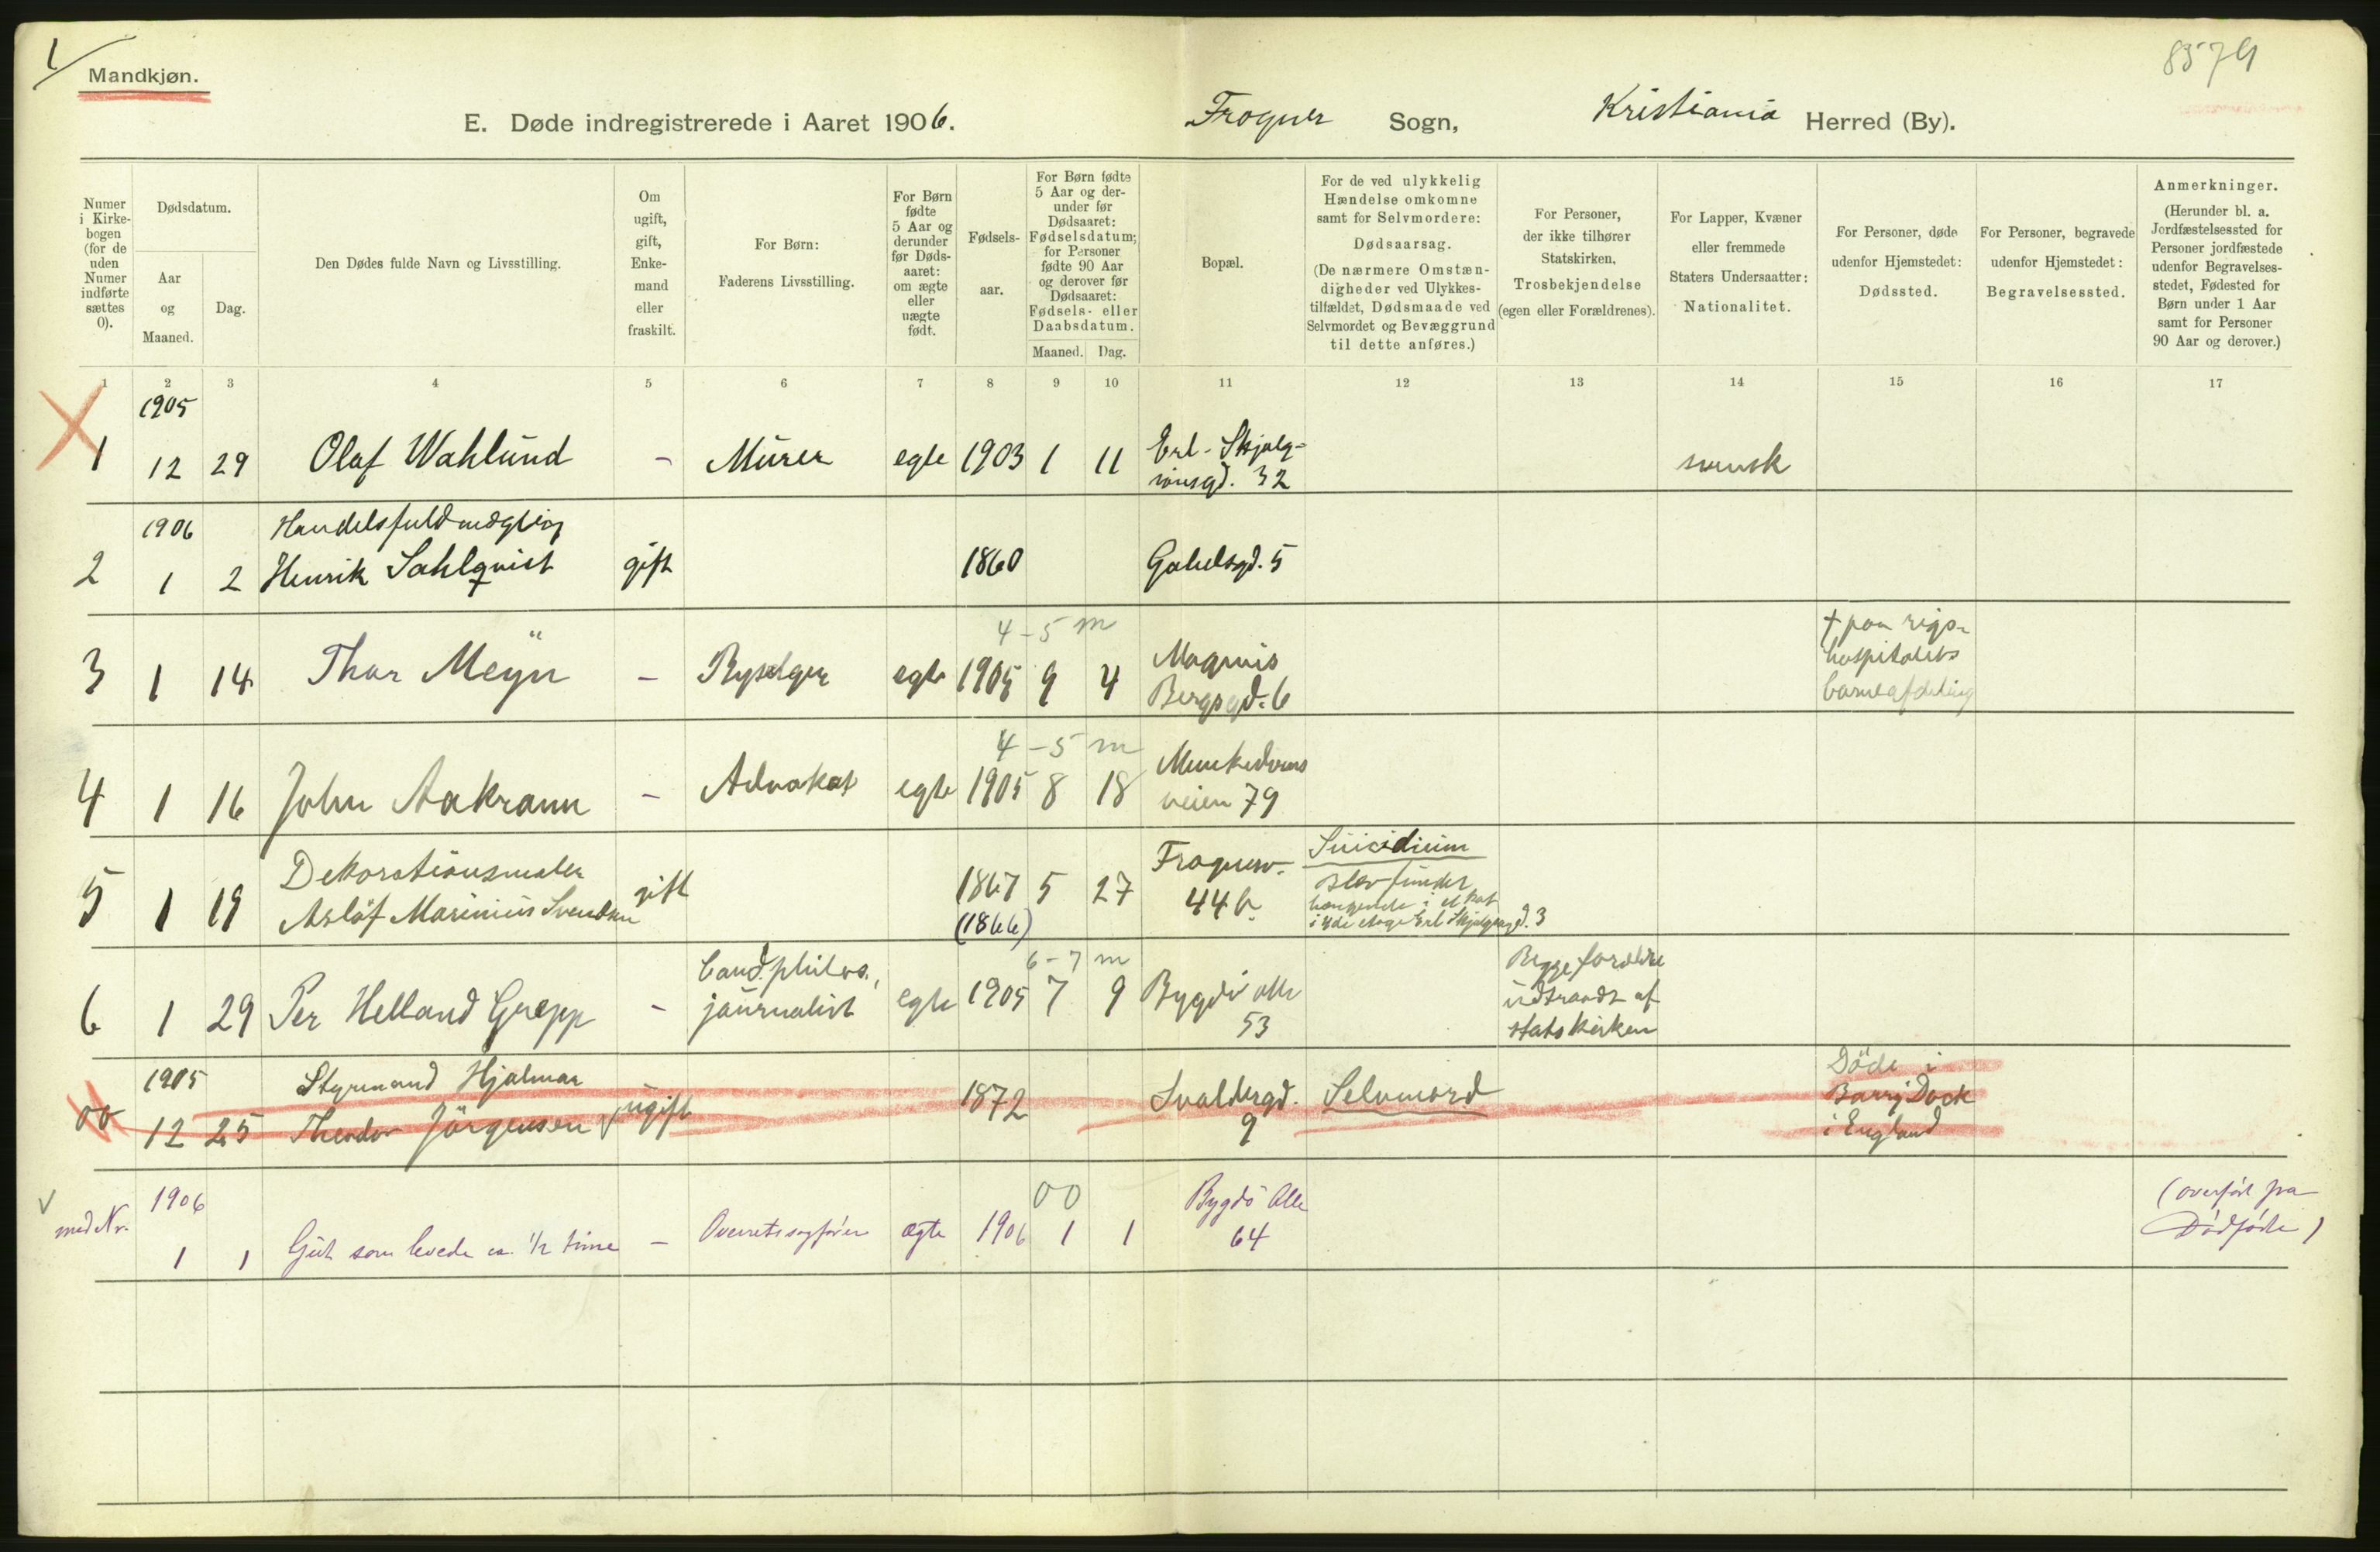 1
Mandkjøn.
8579
E. Døde indregistrerede i Aaret 1906.
Frogner Sogn,
Kristiania Herred (By).
Numer i Kirke-bogen (for de uden Numer indførte sættes 0).
Dødsdatum.
Aar og Maaned.
Dag.
Den Dødes fulde Navn og Livsstilling.
Om ugift, gift, Enke-mand eller fraskilt.
For Børn: Faderens Livsstilling.
For Børn fødte 5 Aar og derunder før Døds-aaret: om ægte eller uægte født.
Fødsels-aar.
For Børn fødte 5 Aar og der-under før Dødsaaret: Fødselsdatum; for Personer fødte 90 Aar og derover før Dødsaaret: Fødsels- eller Daabsdatum.
Maaned. Dag.
Bopæl.
For de ved ulykkelig Hændelse omkomne samt for Selvmordere: Dødsaarsag. (De nærmere Omstæn-digheder ved Ulykkes-tilfældet, Dødsmaade ved Selvmordet og Bevæggrund til dette anføres.)
For Personer, der ikke tilhører Statskirken, Trosbekjendelse (egen eller Forældrenes).
For Lapper, Kvæner eller fremmede Staters Undersaatter: Nationalitet.
For Personer, døde udenfor Hjemstedet: Dødssted.
For Personer, begravede udenfor Hjemstedet: Begravelsessted.
Anmerkninger. (Herunder bl. a. Jordfæstelsessted for Personer jordfæstede udenfor Begravelses-stedet, Fødested for Børn under 1 Aar samt for Personer 90 Aar og derover.)
1 2 3 4 5 6 7 8 9 10 11 12 13 14 15 16 17
1905
1 12 29 Olaf Wahlund - Murer egte 1903 1 11 Erl-Skjalg-
sønsgd. 32 svensk
1906 Handelsfuldmægtig
2 1 2 Henrik Sahlqvist gift 1860 Gabelsgd. 5
4-5 m
3 1 14 Thor Meÿn - Bryselger egte 1905 9 4 Magnus
Bergsgd. 6
† paa rigs-
hospitalets
barneafdeling
4-5 m
4 1 16 John Aakrann - Advokat egte 1905 8 18 Munkedams
veien 79
5 1 19 Dekorationsmaler
Aslaf Marinius Svendsen gift 1867 5 27
(1866)
Frognerv.
44 b.
Suicidium
blev fundet
hængende i et
i 4de etage Erl. Skjalgsgd. 3
6-7 m
6 1 29 Per Helland Grepp - Cand. philos.,
journalist egte 1905 7 9 Bygdø alle
53
Begge forældre
udtraadt af
statskirken
1905 Styrmand Hjalmar
00 12 25 Theodor Jörgensen ugift 1872 Svoldergd.
9
Selvmord
Döde i
Barry Dock
i England
1906 00
med Nr. 1 1 Gut som levede ca. 1/2 time - Overretssagfører ægte 1906 1 1 Bygdö Alle
64
(overført fra
Dödfödte)